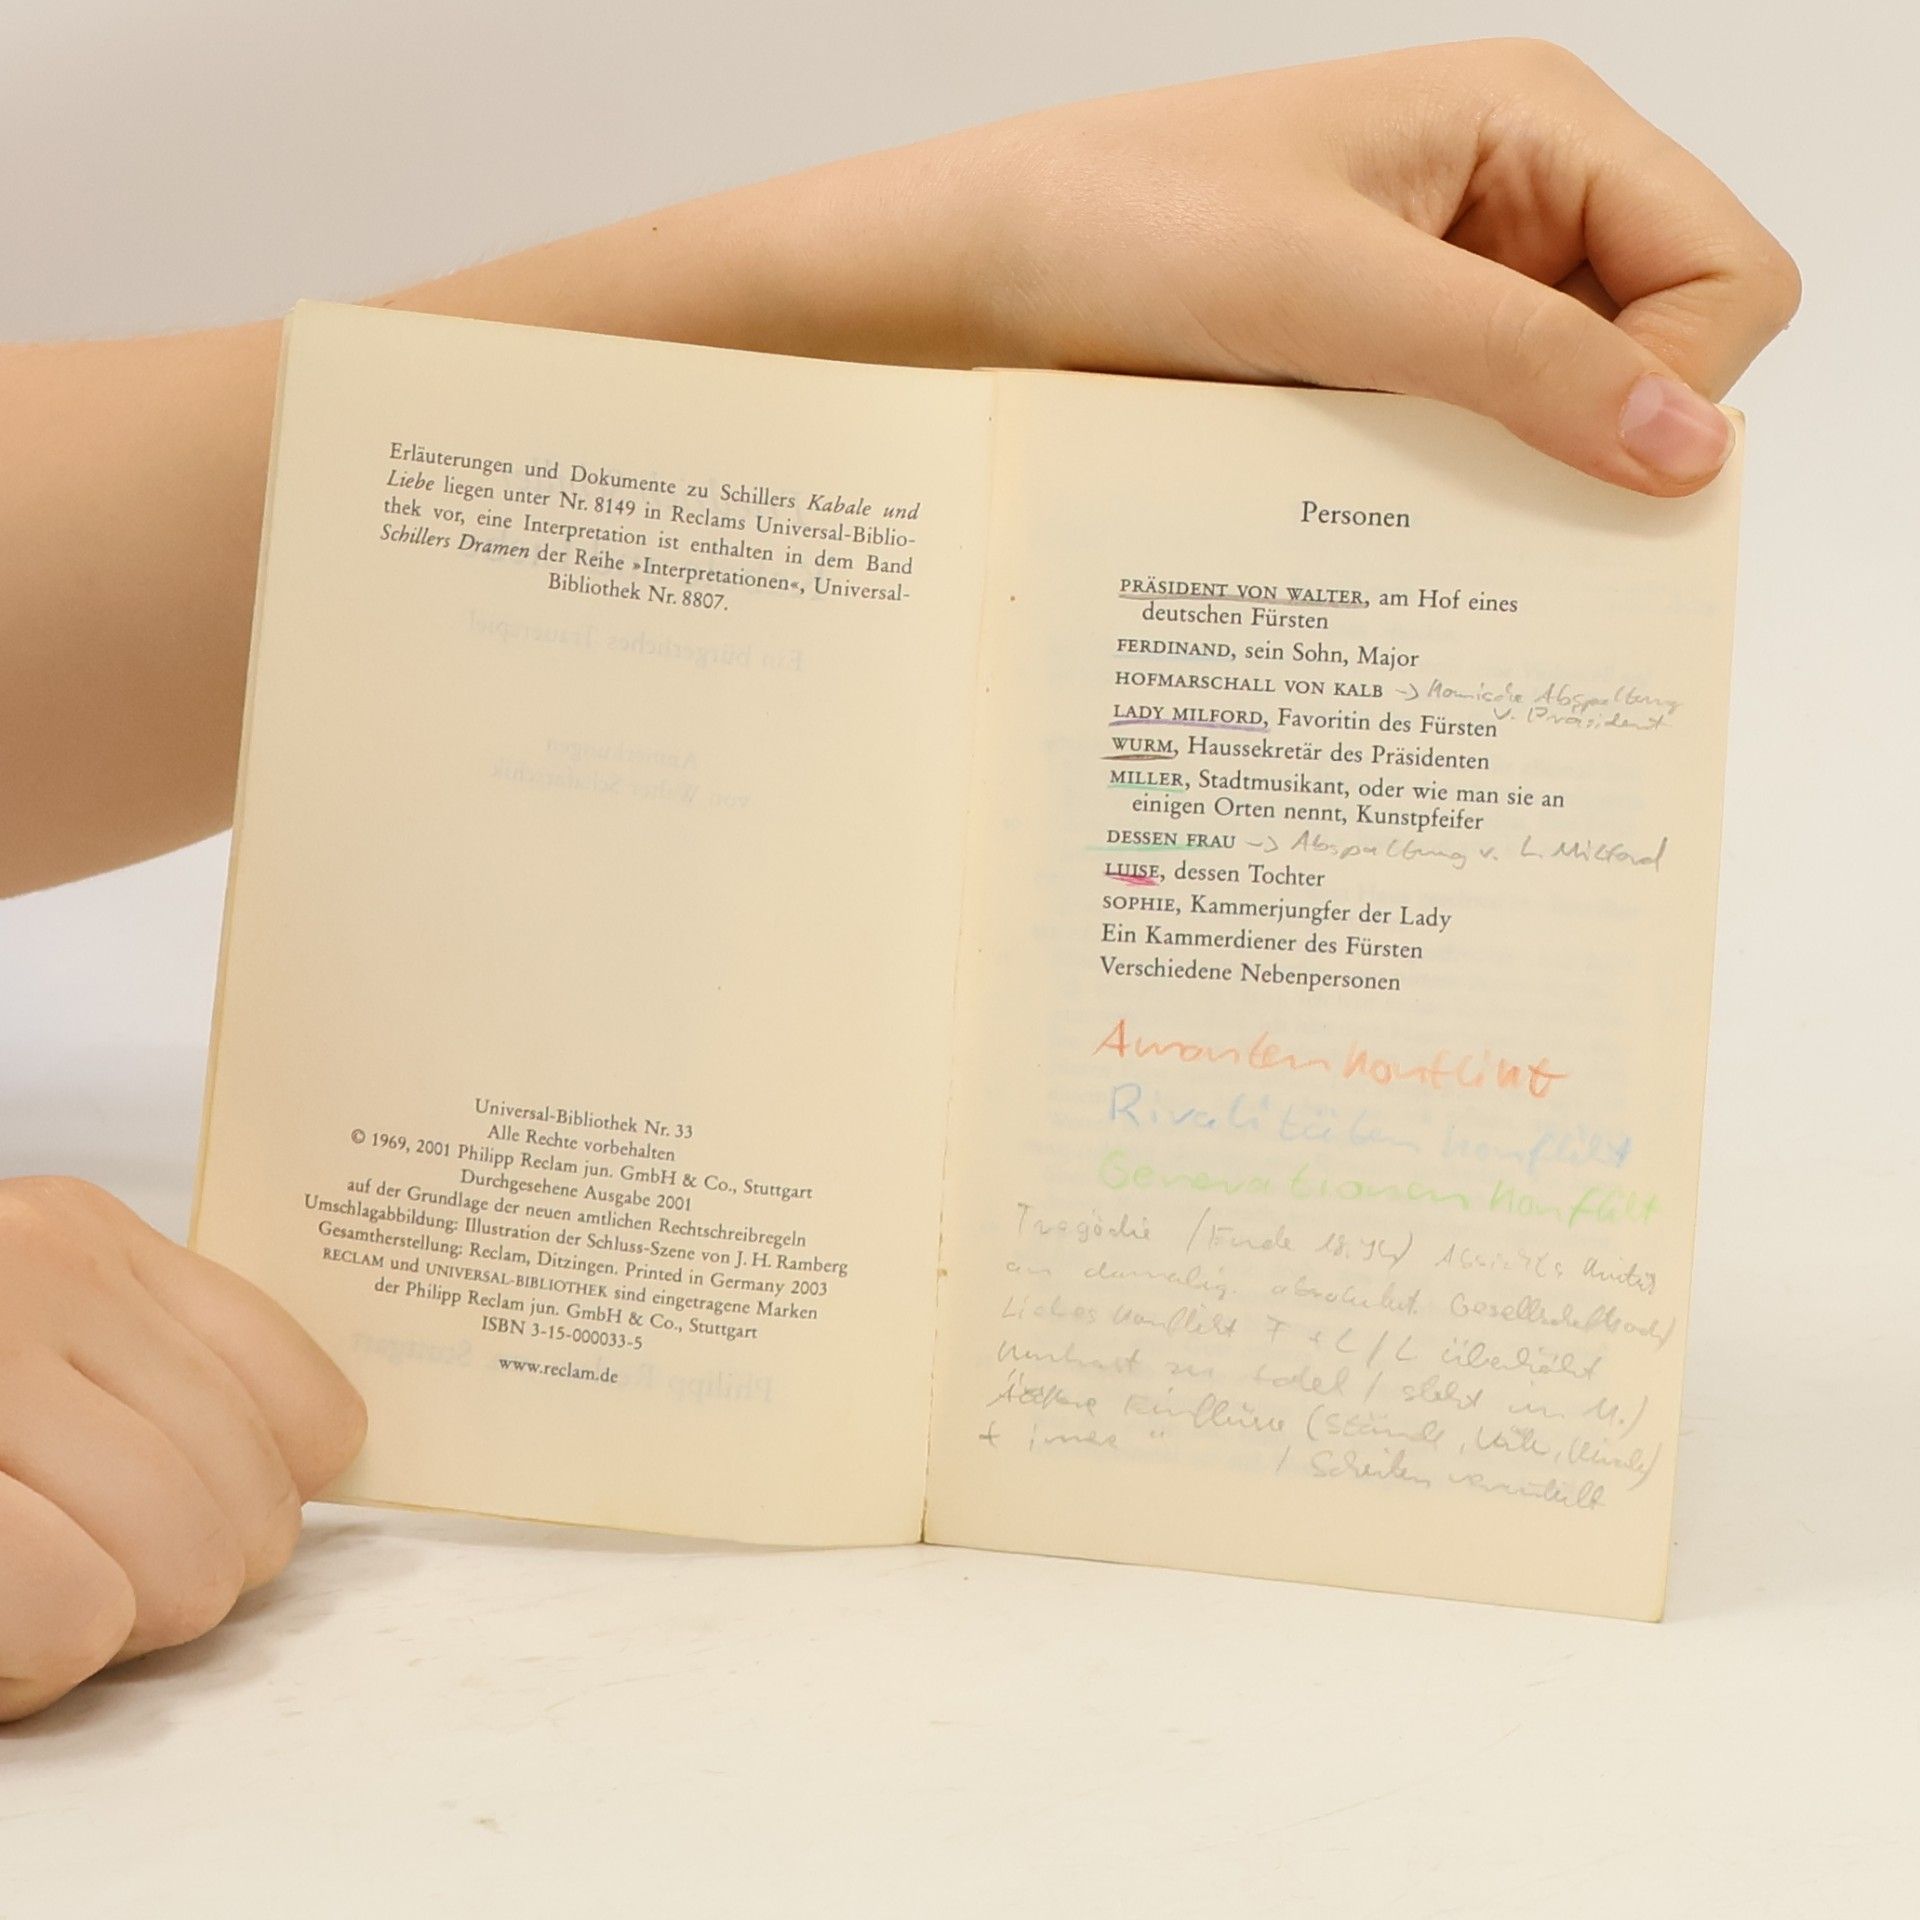 Erläuterungen und Dokumente zu Schillers Kabale und
Liebe liegen unter Nr. 8149 in Reclams Universal-Biblio-
thek vor, eine Interpretation ist enthalten in dem Band
Schillers Dramen der Reihe »Interpretationen«, Universal-
Bibliothek Nr. 8807.
Universal-Bibliothek Nr. 33
Alle Rechte vorbehalten
© 1969, 2001 Philipp Reclam jun. GmbH & Co., Stuttgart
Durchgesehene Ausgabe 2001
auf der Grundlage der neuen amtlichen Rechtschreibregeln
Umschlagabbildung: Illustration der Schluss-Szene von J. H. Ramberg
Gesamtherstellung: Reclam, Ditzingen. Printed in Germany 2003
RECLAM und UNIVERSAL-BIBLIOTHEK sind eingetragene Marken
der Philipp Reclam jun. GmbH & Co., Stuttgart
ISBN 3-15-000033-5
www.reclam.de
Personen
PRÄSIDENT VON WALTER, am Hof eines
deutschen Fürsten
FERDINAND, sein Sohn, Major
HOFMARSCHALL VON KALB -> Komische Abspaltung
v. Präsident
LADY MILFORD, Favoritin des Fürsten
WURM, Haussekretär des Präsidenten
MILLER, Stadtmusikant, oder wie man sie an
einigen Orten nennt, Kunstpfeifer
DESSEN FRAU -> Abspaltung v. L. Milford
LUISE, dessen Tochter
SOPHIE, Kammerjungfer der Lady
Ein Kammerdiener des Fürsten
Verschiedene Nebenpersonen
Amantenkonflikt
Rivalitätenkonflikt
Generationenkonflikt
Tragödie / Ende 18. Jh /
an damalig. absolutist.
Liebeskonflikt F + L / L
zu / steht in M. /
Einflüsse (Stände,
+ innere "
/ Scheitern